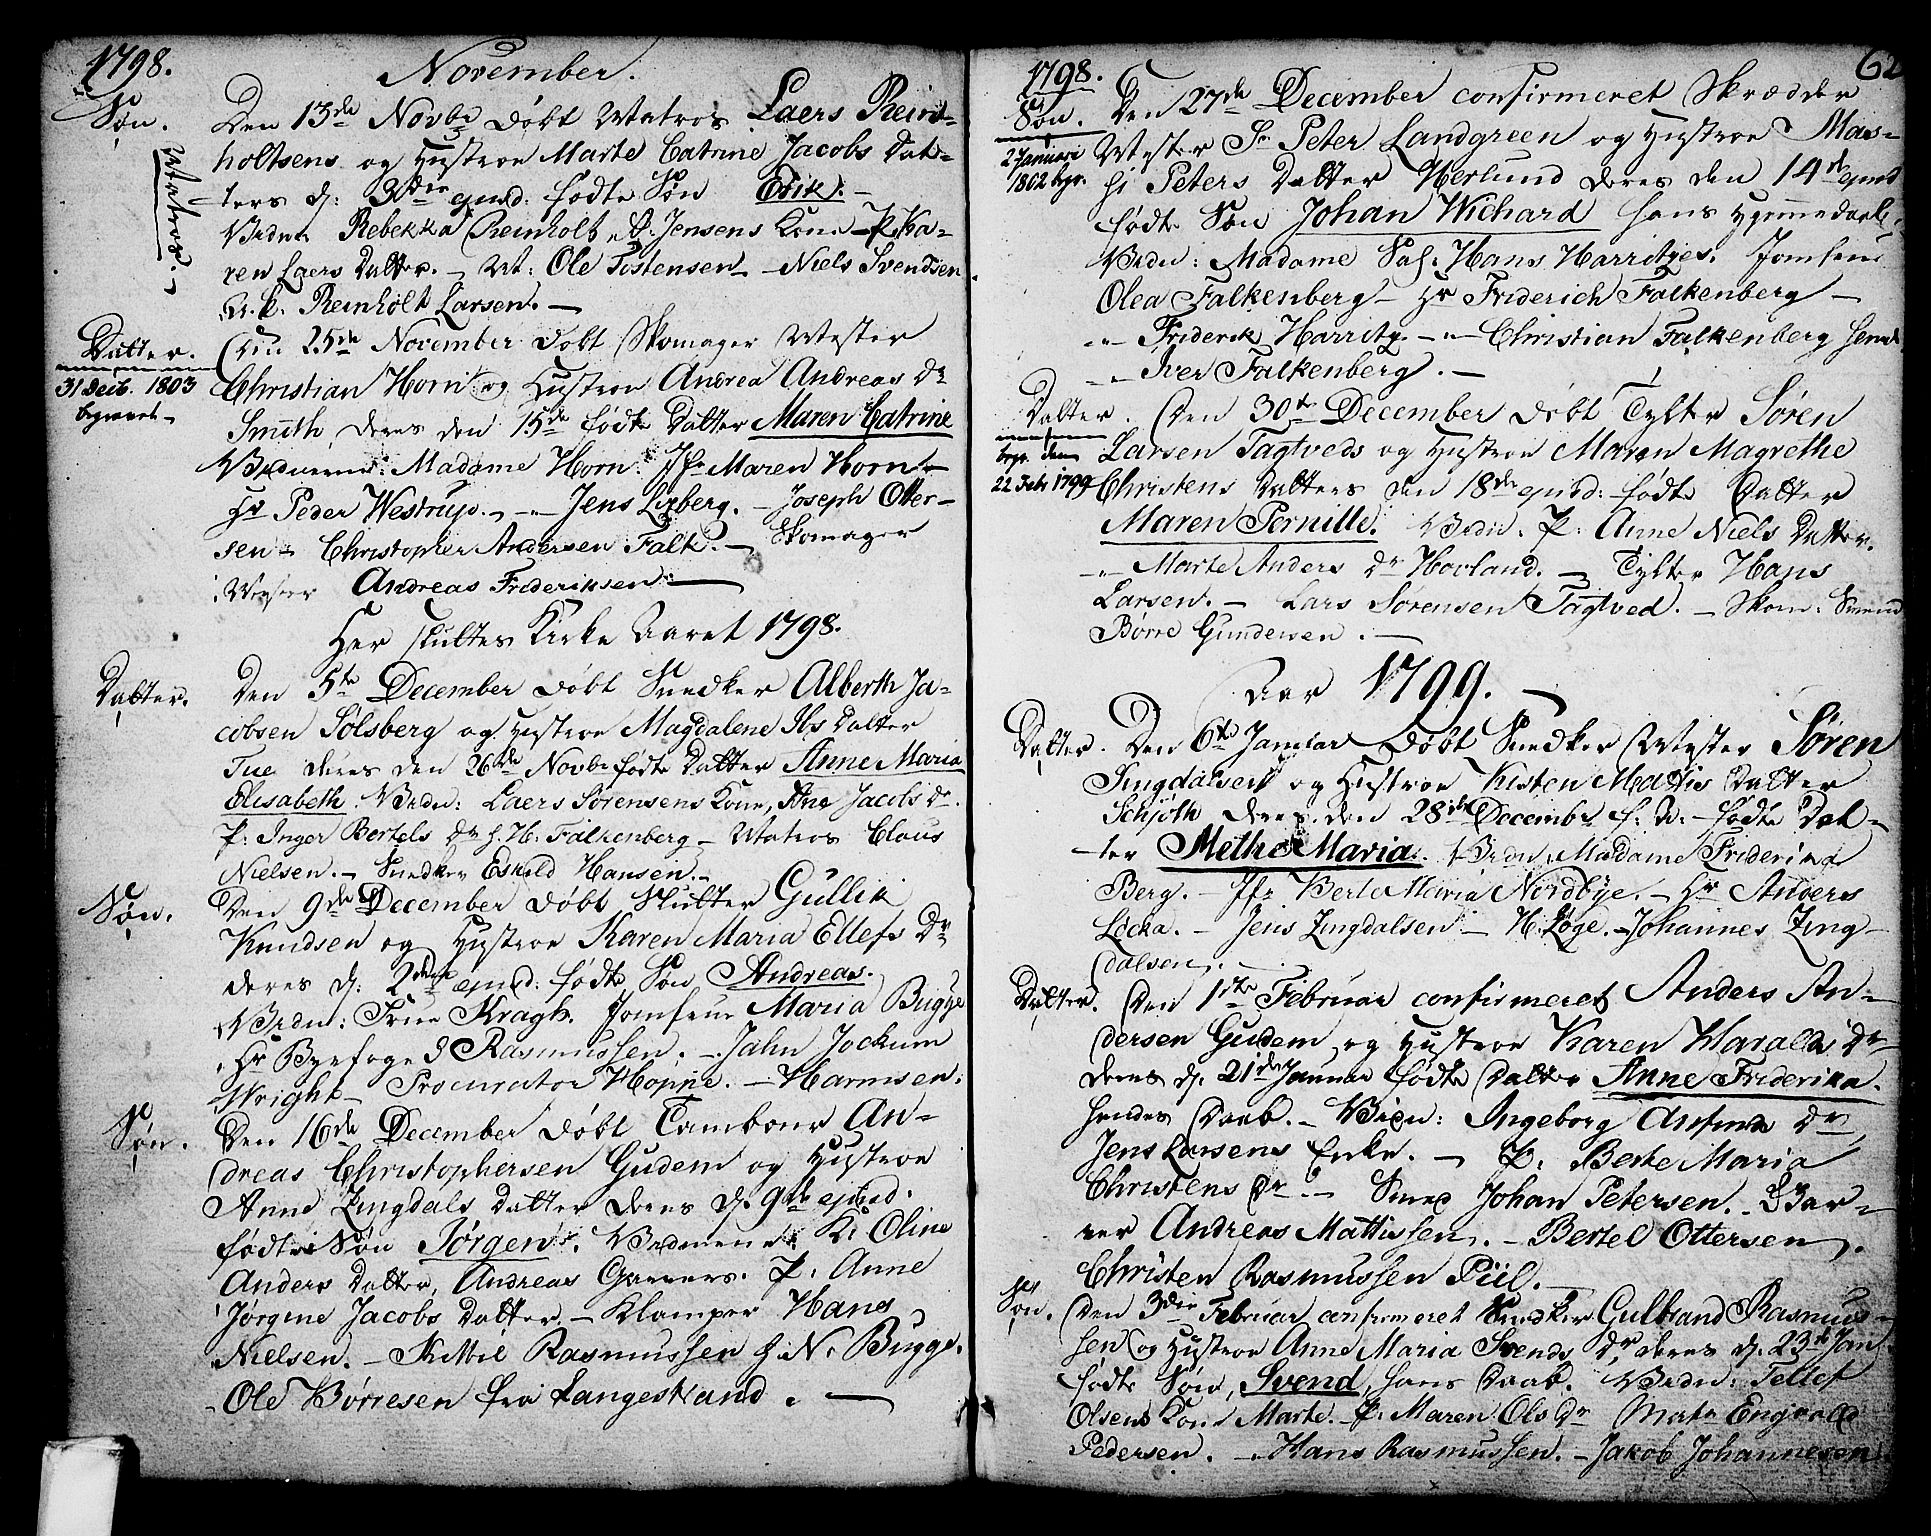 1798.
November.
Søn.
Matros.
Den 13de Novbr døbt Matros Laers Rein-
holtsens og Hustroe Marte Catrine Jacobs Dat-
ters d: 3die ejusd: fødte Søn Erik. –
Vidne Rebekka Reinholt, A. Jensens Kone – P. Ka-
ren Laers Datter. – M: Ole Tostensen – Niels Svendsen
u. k. Reinholt Larsen. –
Datter.
31 Decb. 1803
begravet –
Den 25de November døbt Skomager Mester
Christian Horn og Hustroe Andrea Andreas Dr
Smith, deres den 15de fødte Datter Maren Catrine
Vidnerne: Madame Horn. Jfr Maren Horn –
Hr Peder Westrup. – Jens Lixberg. – Joseph Otter-
sen – Christopher Andersen Falk. – Skomager
Mester Andreas Frideriksen. –
Her sluttes Kirke Aaret 1798.
Datter.
Den 5te December døbt Snedker Alberth Ja-
cobsen Solsberg og Hustroe Magdalene Ibs Datter
Tue deres den 26de Novbr fødte Datter Anne Maria
Elisabeth. Vidn: Laers Sørensens Kone, Ane Jacobs Dr.
P. Inger Bertels Dr h. H. Falkenberg – Matros Claus
Nielsen. – Snedker Eskild Hansen. –
Søn.
Den 9de December døbt Slutter Gullik
Knudsen og Hustroe Karen Maria Ellefs Dr
deres d. 2den ejusd: fødte Søn Andreas.
Vidn: Frue Kragh. Jomfrue Maria Bugge
Hr Byefoged Rasmussen. – Jahn Jockum
Wright – Procurator Høpne. – Harmsen.
Søn.
Den 16de December døbt Tambour An-
dreas Christophersen Gudem og Hustroe
Anne Lingdals Datter deres d. 9de ejusd.
fødte Søn Jørgen. Vidnerne: K. Oline
Anders Datter, Andreas Garners. P. Anne
Jørgine Jacobs Datter. – Klamper Hans
Nielsen. – Kittil Rasmussen h. N. Bugge.
Ole Børresen fra Langestrand. –
62
1798.
Søn.
2 Januari
1802 begr.
Den 27de December confirmeret Skrædder
Mester Sr Peter Landgreen og Hustroe Mas-
si Peters Datter Herlund deres den 14de ejusd
fødte Søn Johan Wichard hans Hjemmedaab.
Vidn: Madame Sal. Hans Harritzes. Jomfrue
Olea Falkenberg – Hr Friderich Falkenberg –
– Friderik Harritz. – Christian Falkenberg
– Iver Falkenberg. –
Datter.
begr. den
22 Febr 1799
Den 30te December døbt Tylter Søren
Larsen Tagtveds og Hustroe Maren Magrethe
Christens Datters den 18de ejusd: fødte Datter
Maren Pernille. Vidn. P: Anne Niels Datter.
– Marte Anders Dr Hovland. – Tylter Hans
Larsen. – Lars Sørensen Tagtved. – Skom: Svend
Børre Gundersen. –
Aar 1799. –
Datter.
Den 6te Januar døbt Snedker Mester Søren
Lingdalsen og Hustroe Kisten Mattis Datter
Schjøth deres den 28de Decembr f. A. fødte Dat-
ter Methe Maria. Vidn. Madame Friderika
Berg. – Jfr Berte Maria Nordbye. – Hr Anders
Löcka. – Jens Lingdalsen – H. Løge. – Johannes Ling-
dalsen. –
Datter.
Den 1ste Februar confirmeret Anders An-
dersen Gudem og Hustroe Karen Haralds Dr
deres d. 21de Januar fødte Datter Anne Friderika.
hendes Daab. – Vidn: Ingeborg Dr
Jens Larsens Enke. – P. Berte Maria
Christens Dr. – Smed Johan Petersen. Gar-
ver Andreas Mattissen. – Bertel Ottersen.
Christen Rasmussen Piil. –
Søn.
Den 3die Februar confirmeret Snedker Gulbrand Rasmus-
sen og Hustroe Anne Maria Svends Dr, deres d. 23de Jan.
fødte Søn, Svend, hans Daab. Vidn: Tellef
Olsens Kone Marte. P. Maren Ols Dr Matr Engvold
Pedersen. – Hans Rasmussen. – Jakob Johannesen